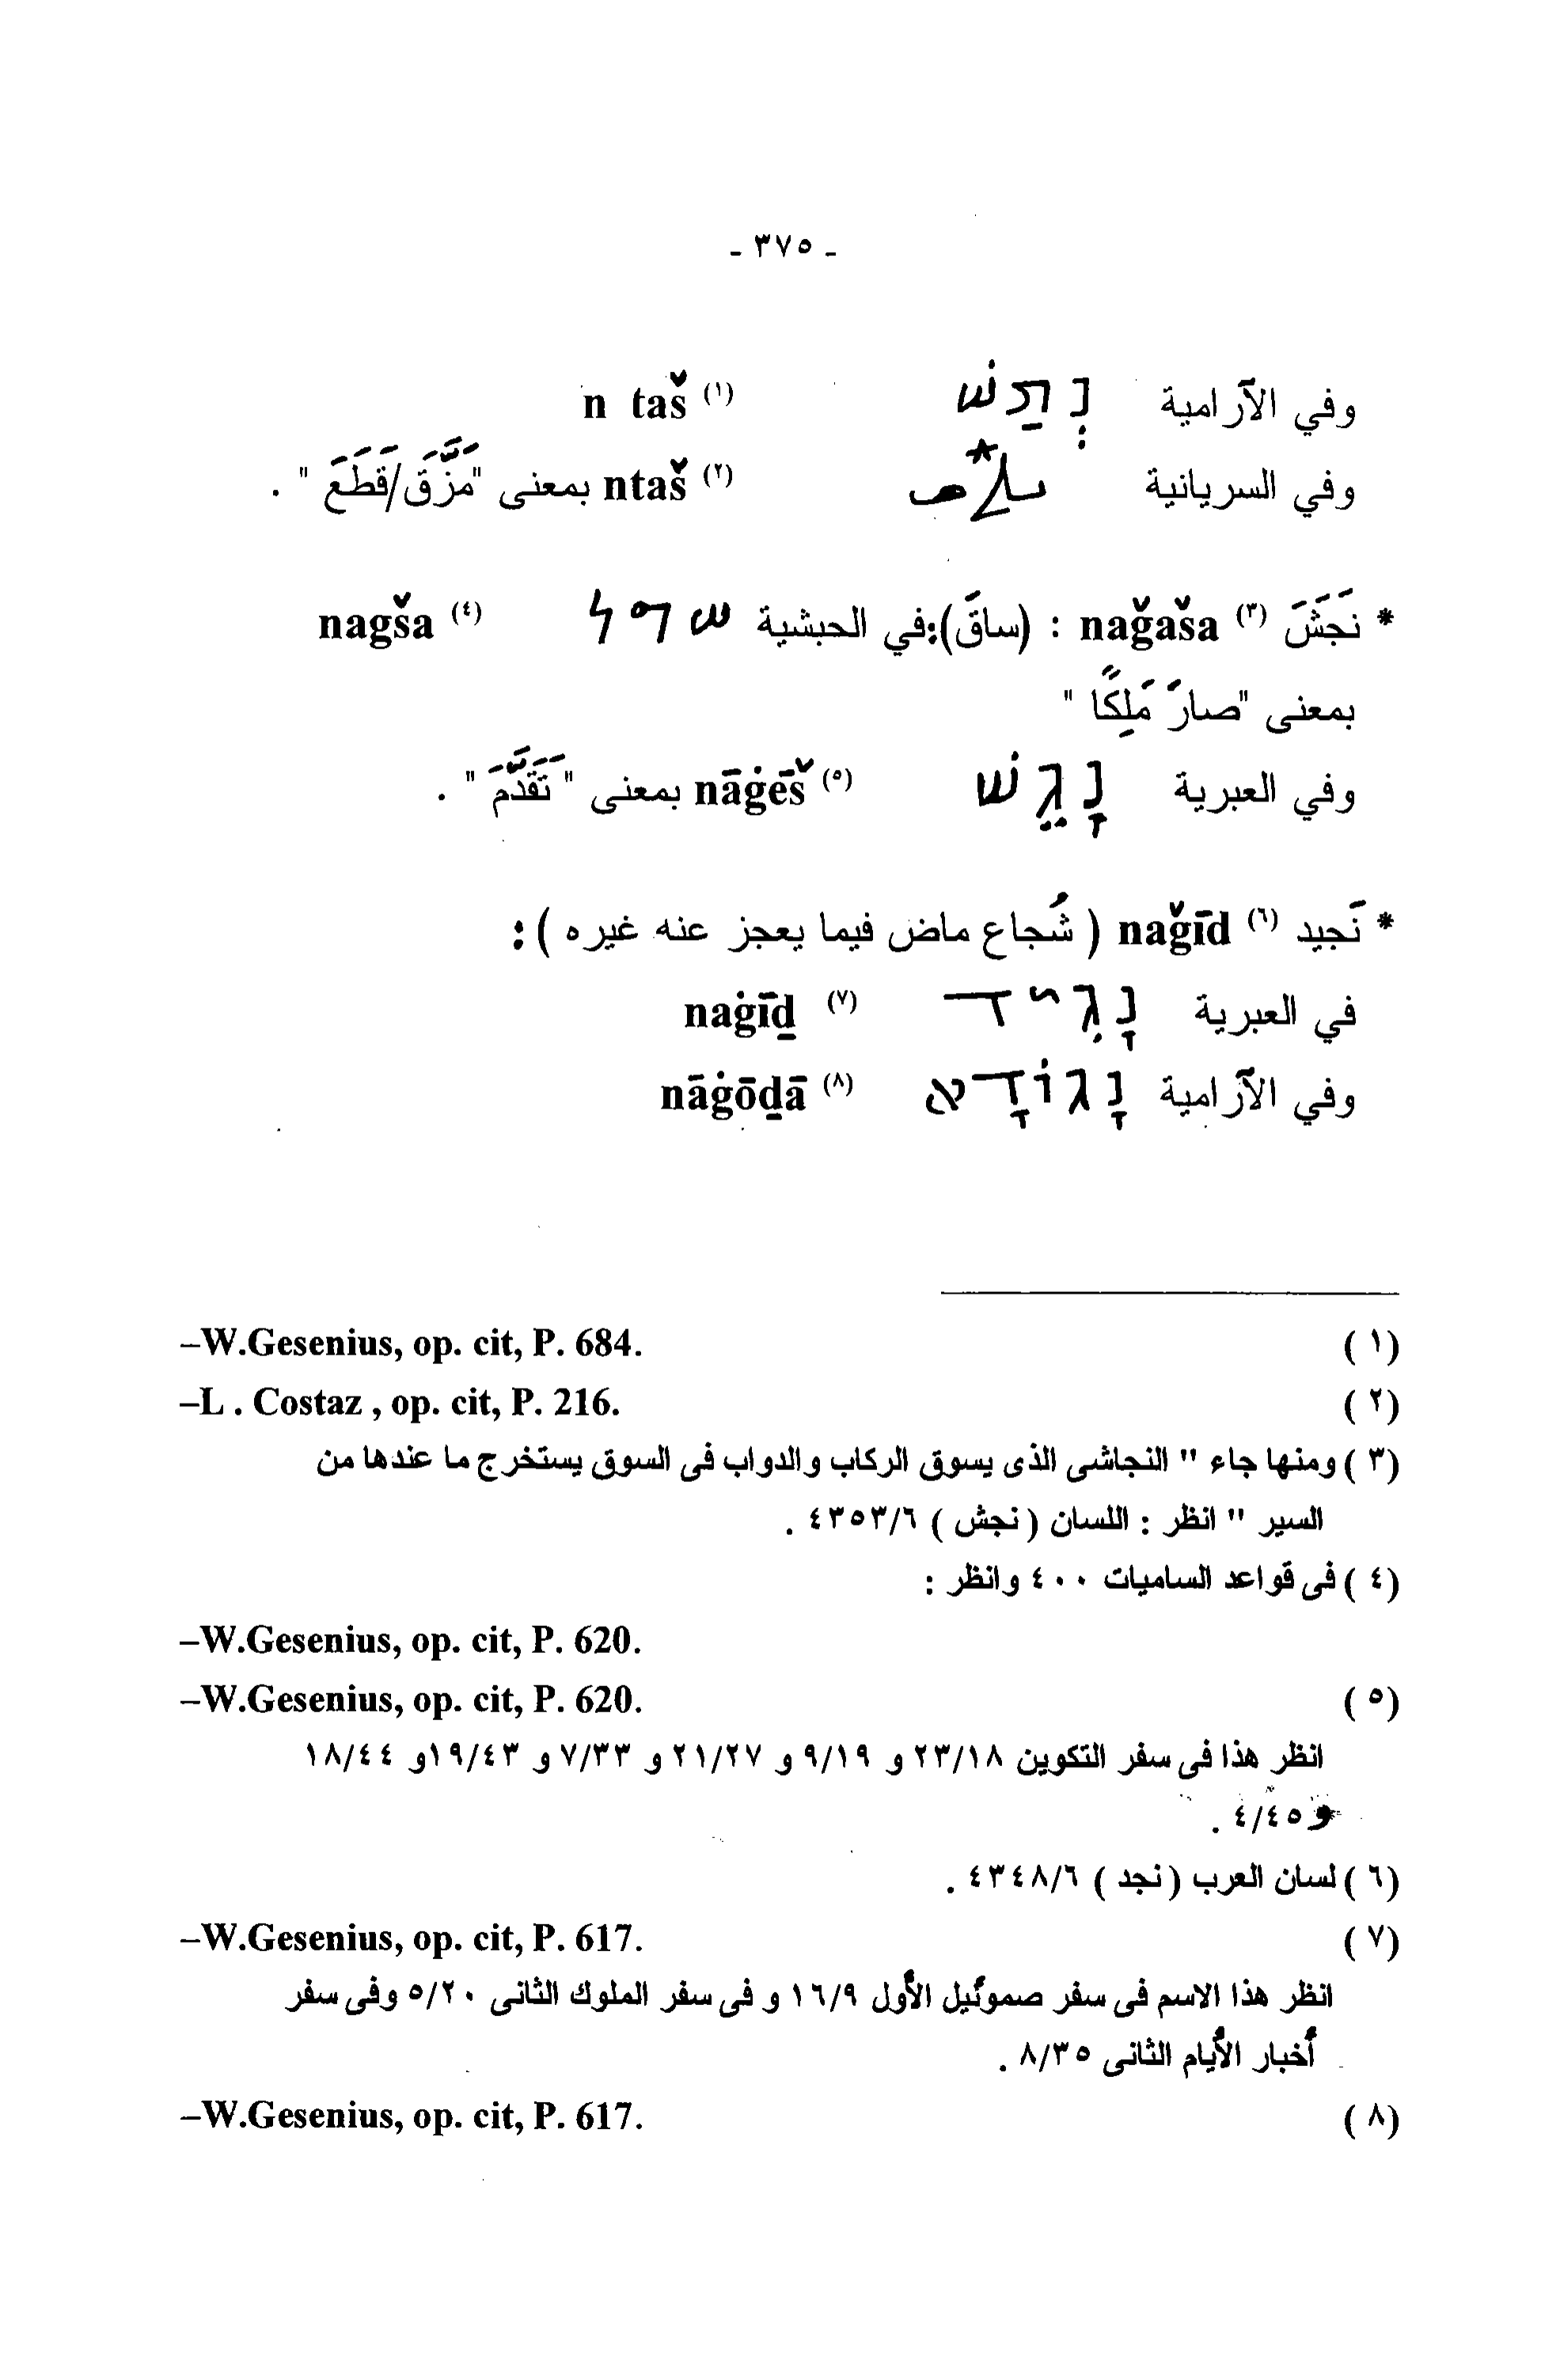 - ٣٧٥ -
وفي الآرامية נְתַשׁ n taš (١)
وفي السريانية ntaš (٢) بمعنى "مَزَّقَ/قَطَعَ " .
* نَجَشَ (٣) nağaša : (ساقَ):في الحبشية nagša (٤)
بمعنى "صارَ مَلِكًا "
وفي العبرية נָגֵשׁ nāġēš (٥) بمعنى " تَقَدَّمَ " .
* نَجيد (٦) nağīd ( شُجاع ماض فيما يعجز عنه غيره ) :
في العبرية נָגִיד naġīḏ (٧)
وفي الآرامية נָגוֹדָא nāġōḏā (٨)
(١) –W.Gesenius, op. cit, P. 684.
(٢) –L . Costaz , op. cit, P. 216.
(٣ ) ومنها جاء " النجاشى الذى يسوق الركاب والدواب فى السوق يستخرج ما عندها من
السير " انظر : اللسان ( نجش ) ٤٣٥٣/٦ .
(٤ ) فى قواعد الساميات ٤٠٠ وانظر :
–W.Gesenius, op. cit, P. 620.
(٥ ) –W.Gesenius, op. cit, P. 620.
انظر هذا فى سفر التكوين ٢٣/١٨ و ٩/١٩ و ٢١/٢٧ و ٧/٣٣ و ١٩/٤٣و ١٨/٤٤
و٤/٤٥ .
(٦ ) لسان العرب ( نجد ) ٤٣٤٨/٦ .
(٧ ) –W.Gesenius, op. cit, P. 617.
انظر هذا الاسم فى سفر صموئيل الأول ١٦/٩ و فى سفر الملوك الثانى ٥/٢٠ وفى سفر
أخبار الأيام الثانى ٨/٣٥ .
(٨ ) –W.Gesenius, op. cit, P. 617.